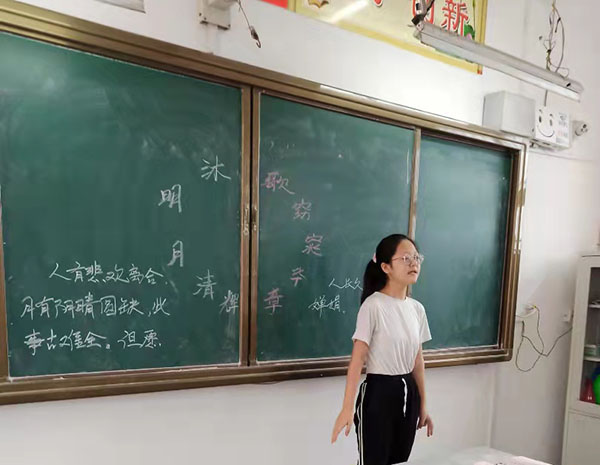 新
沐明月清辉
歌窈窕之章
人有悲欢离合,
月有阴晴圆缺,此
事古难全。但愿
人长久
婵娟。